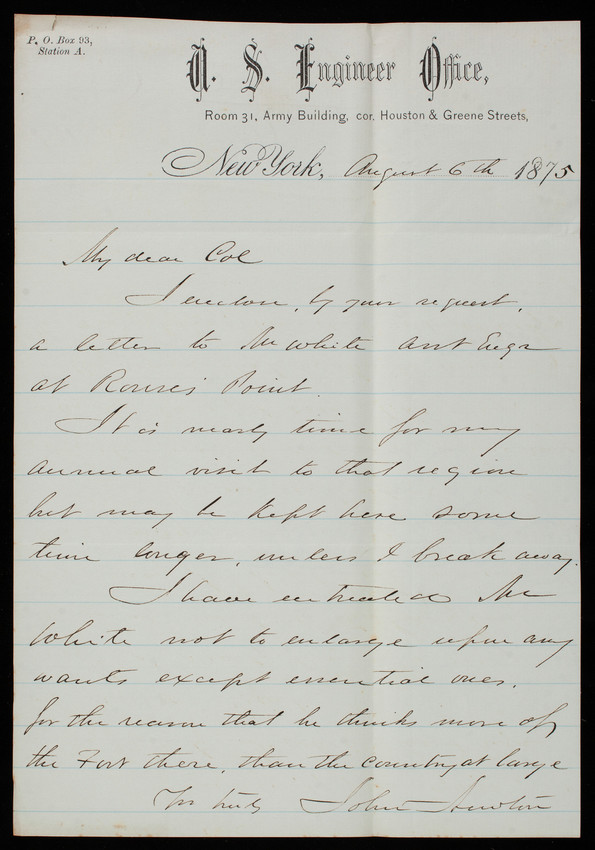 P. O. Box 93,
Station A.
U. S. Engineer Office,
Room 31, Army Building, cor. Houston & Greene Streets,
New York, August 6th 1875
My dear Col
I enclose, by your request,
a letter to Mr White Asst Engr
at Rouse's Point.
It is nearly time for my
annual visit to that region
but may be kept here some
time longer, unless I break away.
I have entreated Mr
White not to enlarge upon any
wants except essential ones,
for the reason that he thinks more of
the Fort there, than the country at large
Yrs truly John Newton